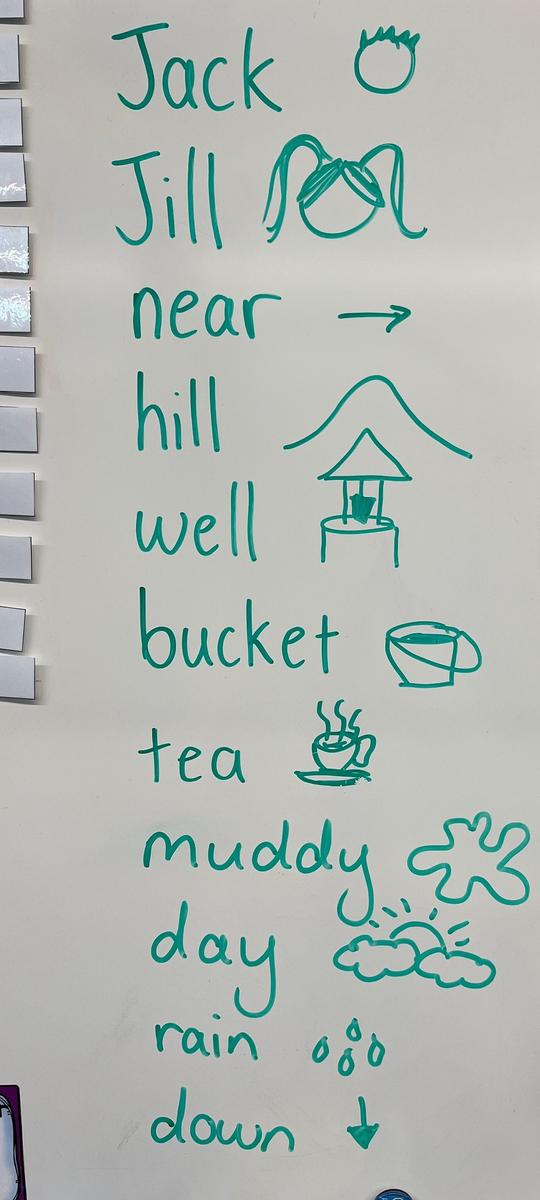 Jack
Jill
near
hill
well
bucket
tea
muddy
day
rain
down